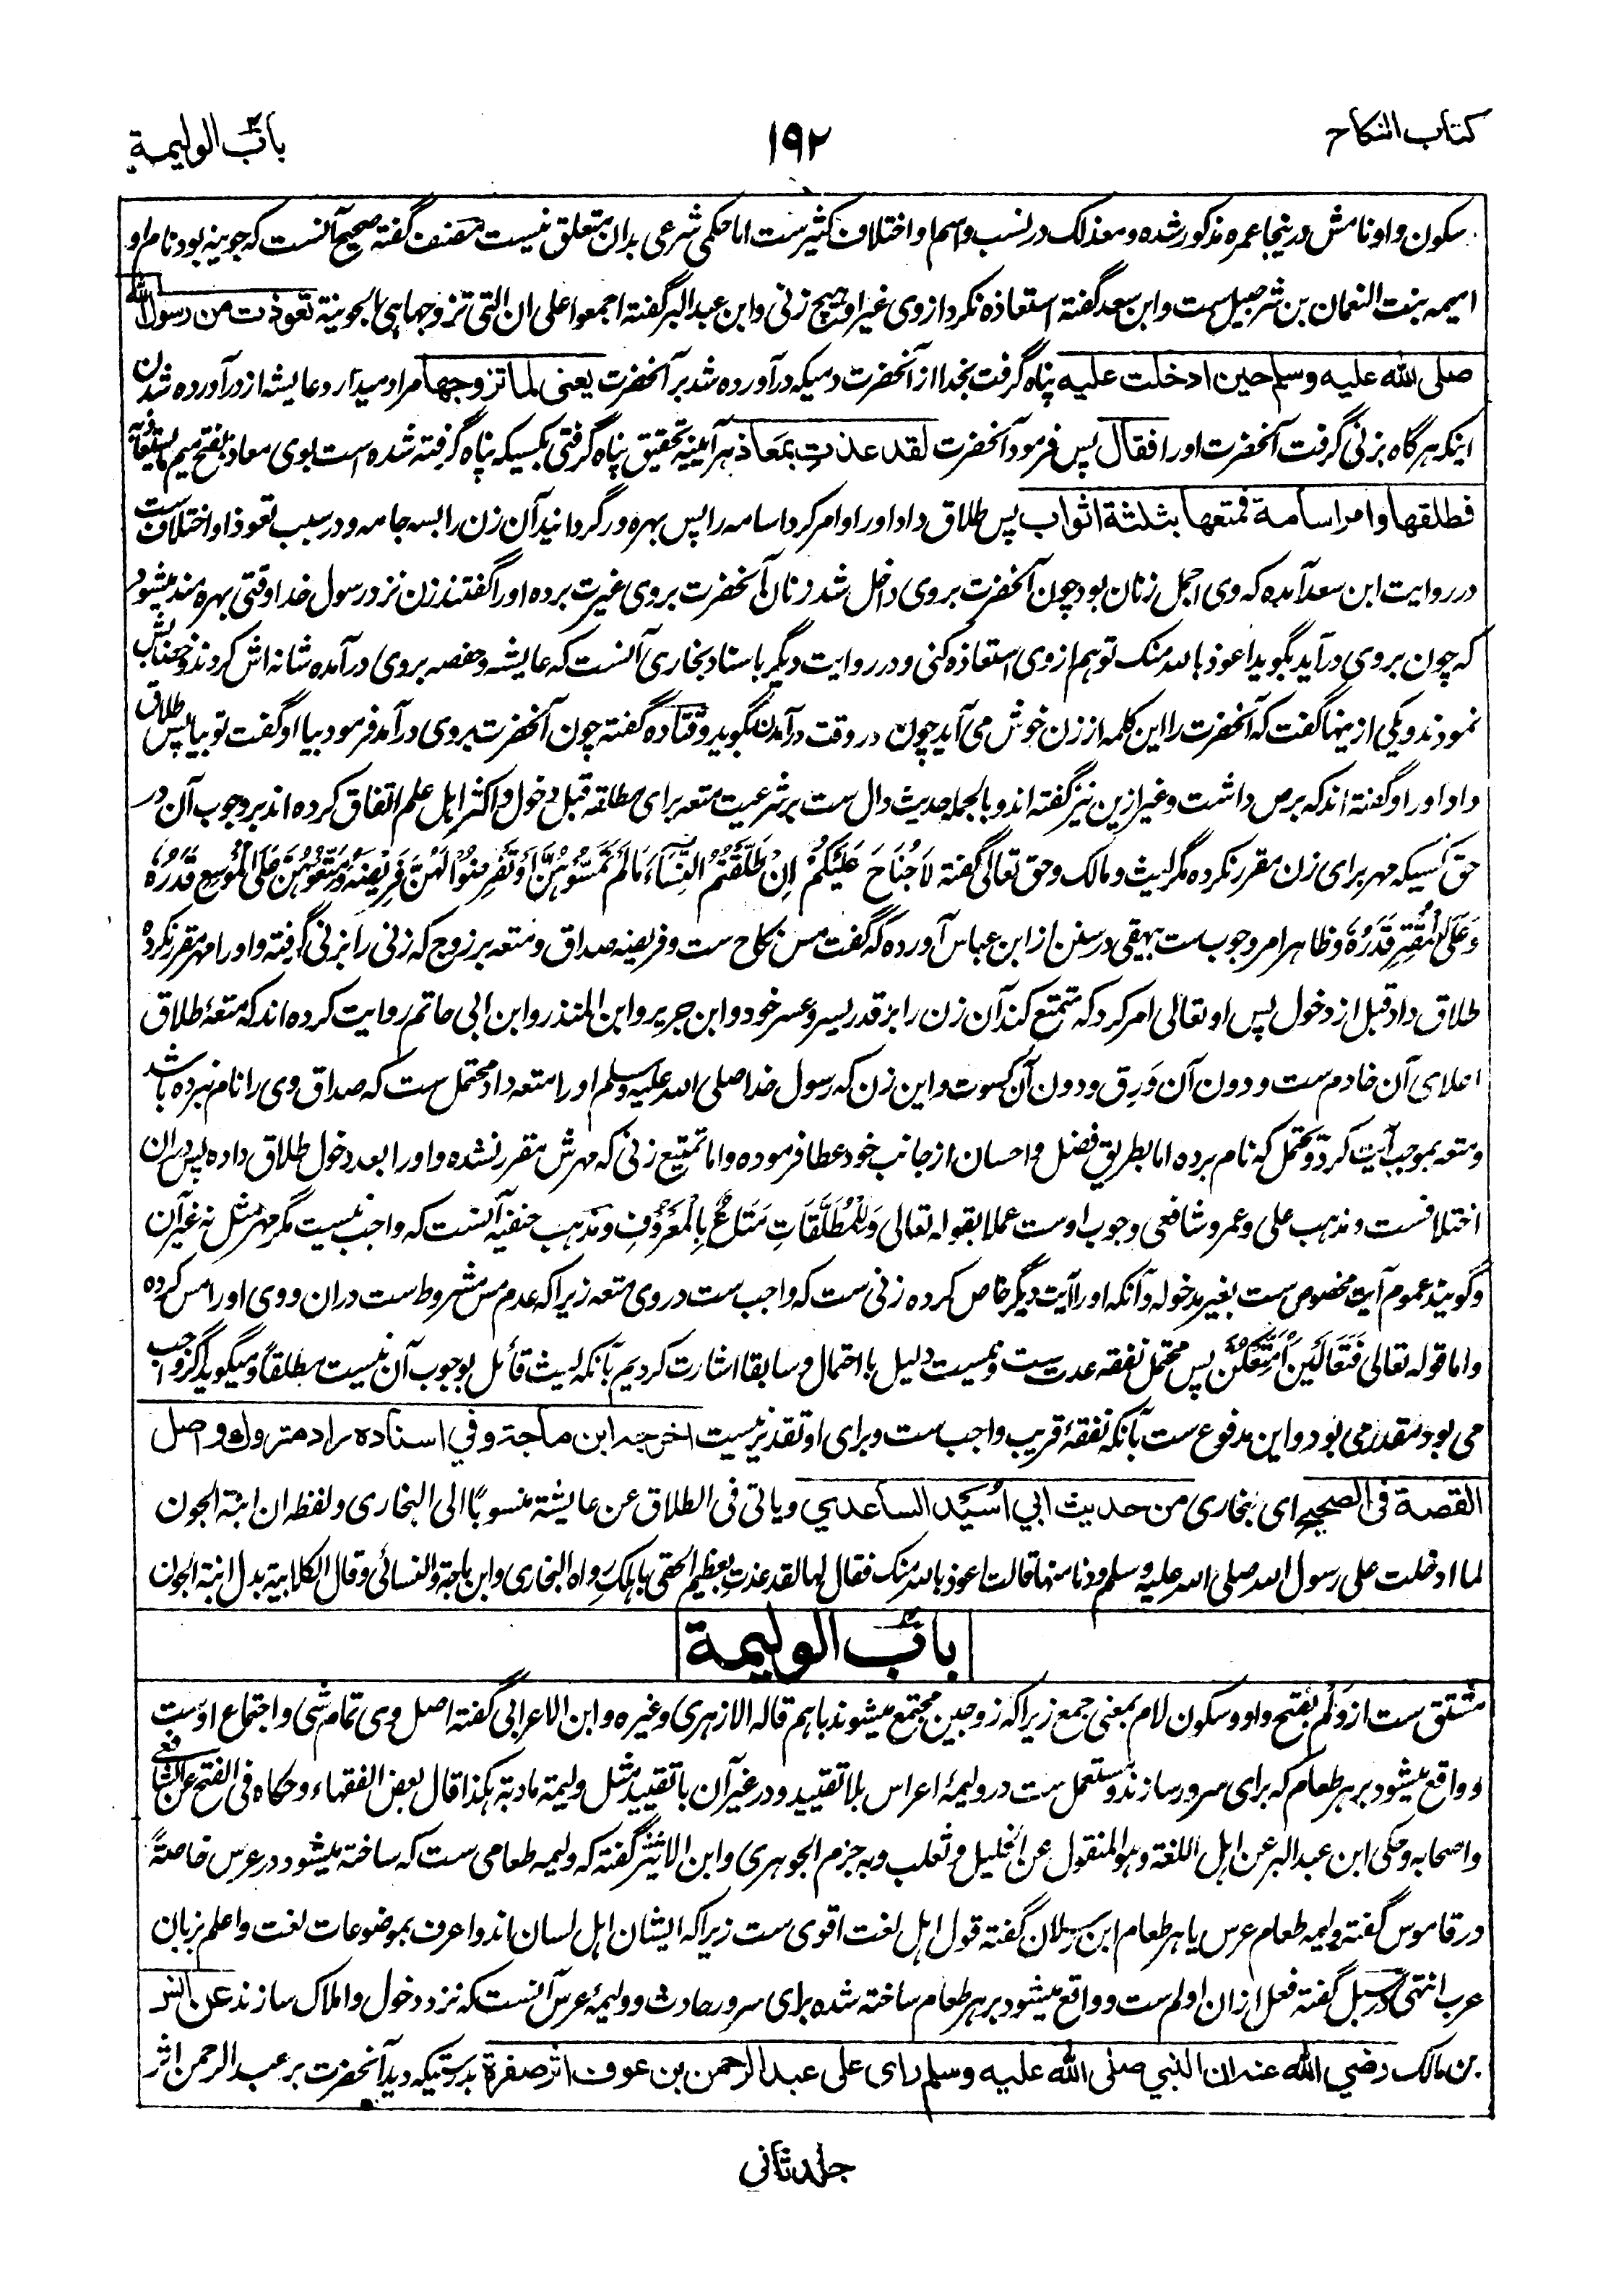 كتاب النكاح
١٩٢
باب الوليمة
سکون واو نامش درینجا عمره مذکور شده و معذلک در نسب و اسم او اختلاف کثیر ست اما حکمی شرعی بدان متعلق نیست مصنف گفته صحیح آنست که جوینه بود نام او
امیمه بنت النعمان بن شرحبیل ست و ابن سعد گفته استعاذه نکرد از وی غیر او هیچ زنی و ابن عبد البر گفته اجمعوا علی ان التی تزوجها هی الجونیة تعوذت من رسول الله
صلی الله علیه وسلم حین ادخلت علیه پناه گرفت بخدا از آنحضرت دمیکه در آورده شد بر آنحضرت یعنی لما تزوجها مراد میدارد عایشه از در آورده شدن
اینکه هرگاه بزنی گرفت آنحضرت او را فقال پس فرمود آنحضرت لقد عذتِ بمَعاذ هر آیینه تحقیق پناه گرفتی بکسیکه پناه گرفته شده است بوی معاذ بفتح میم
فطلقها وامر اسامة فمتعها بثلثة اثواب پس طلاق داد او را و امر کرد اسامه را پس بهره ور گردانید آن زن را بسه جامه و در سبب تعوذ او اختلاف ست
در روایت ابن سعد آمده که وی اجمل زنان بود چون آنحضرت بروی داخل شد زنان آنحضرت بروی غیرت برده او را گفتند زن نزد رسول خدا وقتی بهره مند میشود
که چون بر وی در آید بگوید اعوذ بالله منک تو هم از وی استعاذه کنی و در روایت دیگر باسناد بخاری آنست که عایشه و حفصه بروی در آمده شانه اش کردند و خضابش
نمودند و یکی ازینها گفت که آنحضرت را این کلمه از زن خوش می آید چون در وقت در آمدن بگوید و قتاده گفته چون آنحضرت بروی در آمد فرمود بیا او گفت تو بیا پس طلاق
داد او را و گفته اند که برص داشت و غیر ازین نیز گفته اند و بالجمله حدیث دال ست بر شرعیت متعه برای مطلقه قبل دخول و اکثر اهل علم اتفاق کرده اند بر وجوب آن در
حق کسیکه مهر برای زن مقرر نکرده مگر لیث و مالک و حق تعالی گفته لَا جُنَاحَ عَلَيْكُمْ اِنْ طَلَّقْتُمُ النِّسَآءَ مَا لَمْ تَمَسُّوْهُنَّ اَوْ تَفْرِضُوْا لَهُنَّ فَرِيْضَةً وَّمَتِّعُوْهُنَّ عَلَى الْمُوْسِعِ قَدَرُهٗ
وَعَلَى الْمُقْتِرِ قَدَرُهٗ و ظاهر امر وجوب ست بیهقی در سنن از ابن عباس آورده که گفت مس نکاح ست و فریضه صداق و متعه بر زوج که زنی را بزنی گرفته و او را مهر مقرر نکرده
طلاق داد قبل از دخول پس او تعالی امر کرد که تمتع کند آن زن را بر قدر یسر و عسر خود و ابن جریر و ابن المنذر و ابن ابی حاتم روایت کرده اند که متعهٔ طلاق
اعلای آن خادم ست و دون آن وَرِق و دون آن کسوت و این زن که رسول خدا صلی الله علیه وسلم او را متعه داد محتمل ست که صداق وی را نام نبرده باشد
و متعه بموجب آیت کرد و محتمل که نام برده اما بطریق فضل و احسان از جانب خود عطا فرموده و اما تمتیع زنی که مهرش مقرر نشده و او را بعد دخول طلاق داده پس دران
اختلافست و مذهب علی و عمر و شافعی وجوب اوست عملا بقوله تعالی وَلِلْمُطَلَّقَاتِ مَتَاعٌ بِالْمَعْرُوْفِ و مذهب حنفیه آنست که واجب نیست مگر مهر مثل نه غیر آن
و گویند عموم آیت مخصوص ست بغیر مدخوله و آنکه او را آیت دیگر خاص کرده زنی ست که واجب ست در وی متعه زیرا که عدم مس مشروط ست دران و وی او را مس کرده
و اما قوله تعالی فَتَعَالَيْنَ اُمَتِّعْكُنَّ پس محتمل نفقه عدت ست و نیست دلیل با احتمال و سابقا اشارت کردیم بآنکه لیث قائل بوجوب آن نیست مطلقاً و میگوید اگر واجب
می بود مقدر می بود و این مدفوع ست بآنکه نفقهٔ قریب واجب ست و برای او تقدیر نیست اخرجه ابن ماجة وفي اسناده راو متروك واصل
القصة في الصحيح ای بخاری من حديث ابي اُسَيد الساعدي ویاتی فی الطلاق عن عایشة منسوبًا الی البخاری ولفظه ان ابنة الجون
لما ادخلت علی رسول الله صلی الله علیه وسلم ودنا منها قالت اعوذ بالله منک فقال لها لقد عذتِ بعظیم الحقی باهلکِ رواه البخاری وابن ماجة والنسائی وقال الکلابیة بدل ابنة الجون
باب الوليمة
مشتق ست از وَلْم بفتح واو و سکون لام بمعنی جمع زیرا که زوجین مجتمع میشوند باهم قاله الازهری وغیره و ابن الاعرابی گفته اصل وی تمام شی و اجتماع اوست
و واقع میشود بر هر طعام که برای سرور سازند و مستعمل ست در ولیمهٔ اعراس بلا تقیید و در غیر آن با تقیید مثل ولیمة مادبة هکذا قال بعض الفقهاء وحکاه فی الفتح عن الشافعی
واصحابه وحکی ابن عبد البر عن اهل اللغة وهو المنقول عن الخلیل وثعلب وبه جزم الجوهری و ابن الاثیر گفته که ولیمه طعامی ست که ساخته میشود در عرس خاصةً
در قاموس گفته ولیمه طعام عرس یا هر طعام ابن رسلان گفته قول اهل لغت اقوی ست زیرا که ایشان اهل لسان اند و اعرف بموضوعات لغت و اعلم بزبان
عرب انتهی در سبل گفته فعل ازان اولم ست و واقع میشود بر هر طعام ساخته شده برای سرور حادث و ولیمهٔ عرس آنست که نزد دخول و املاک سازند عن انس
بن مالک رضي الله عنه ان النبي صلى الله عليه وسلم رای على عبد الرحمن بن عوف اثر صفرة بدرستیکه دید آنحضرت بر عبد الرحمن اثر
جلد ثاني